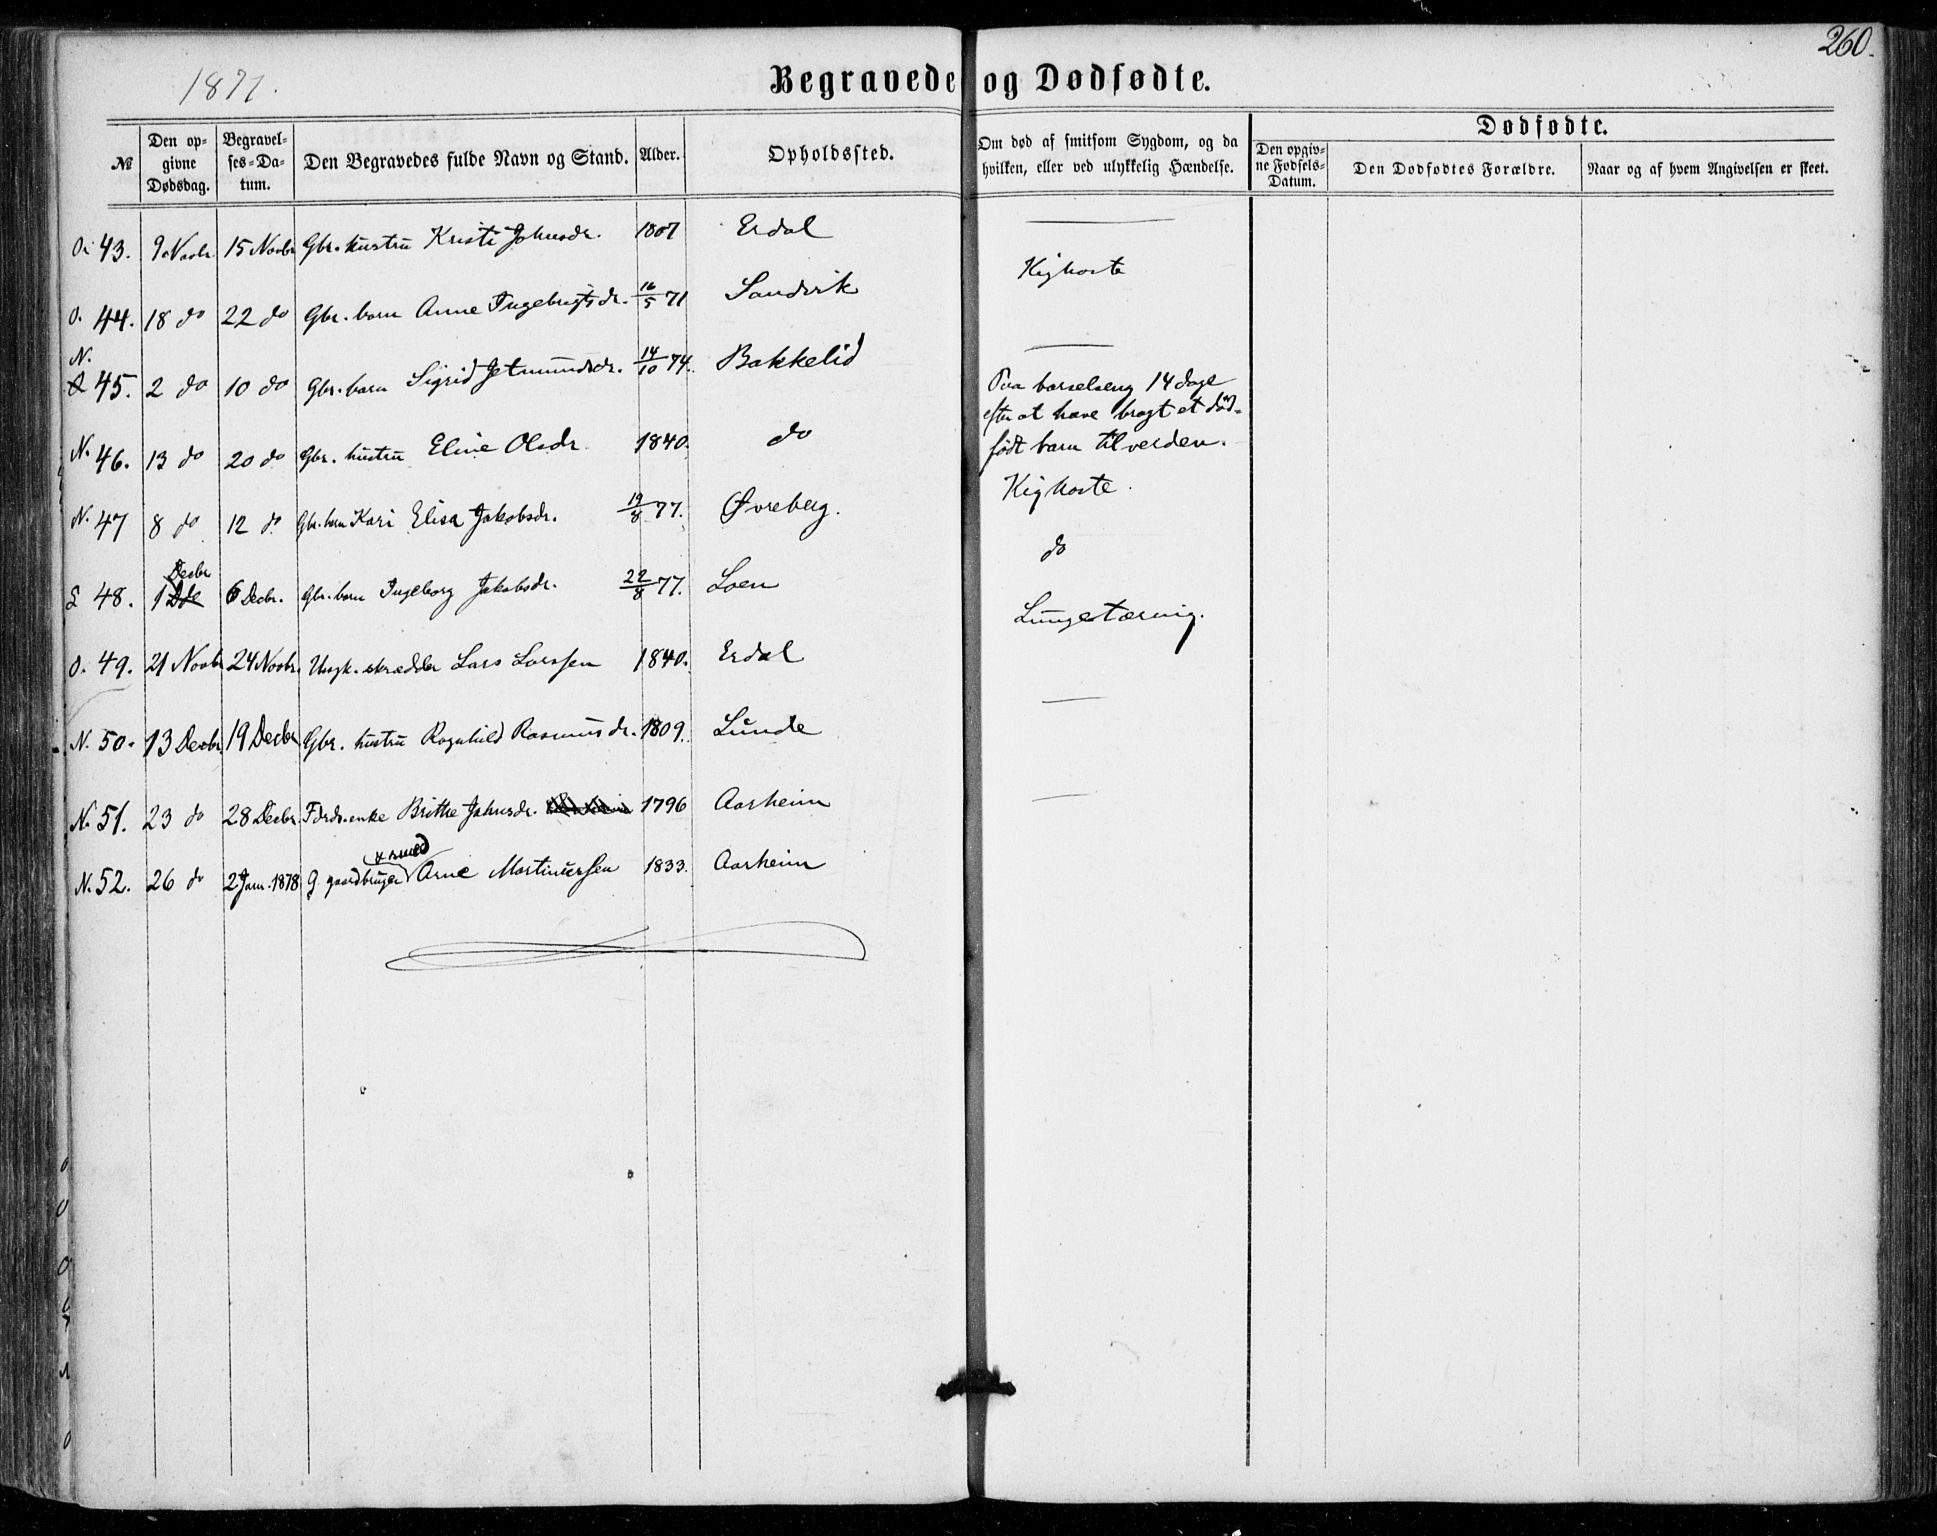 260.
1877.
Begravede og Dødfødte.
№ Den opgivne Dødsdag. Begravelses-Datum. Den Begravedes fulde Navn og Stand. Alder. Opholdssted. Om død af smitsom Sygdom, og da hvilken, eller ved ulykkelig Hændelse. Dødfødte. Den opgivne Fødsels-Datum. Den Dødfødtes Forældre. Naar og af hvem Angivelsen er skeet.
O. 43. 9 Novbr 15 Novbr Gbr. hustru Kristi Johnsdr. 1807 Erdal
O. 44. 18 do 22 do Gbr. barn Anne Ingebrigtsdr. 16/5 71 Sandvik Kighoste
N. 45. 2 do 10 do Gbr. barn Sigrid Jetmundsdr. 14/10 74. Bakkelid
N. 46. 13 do 20 do Gbr. hustru Eline Olsdr. 1840. do Paa barselseng 14 dage
efter at have bragt et død-
født barn til verden.
N. 47 8 do 12 do Gbr. barn Kari Elisa Jakobsdr. 19/8 77. Øvreberg. Kighoste.
L 48. 1 Decbr 6 Decbr. Gbr. barn Ingeborg Jakobsdr. 22/8 77. Loen do
O. 49. 21 Novbr 24 Novbr. Ungk. skrædder Lars Larssen 1840. Erdal Lungetæring.
N. 50. 13 Decbr 19 Decbr Gbr. hustru Ragnhild Rasmusdr. 1809. Lunde
N. 51. 23 do 28 Decbr. Fdrdr. enke Brithe Johnsdr. 1796 Aarheim
N. 52. 26 do 2 Janr. 1878 G. gaardbruger x smed Arne Martinussen 1833. Aarheim